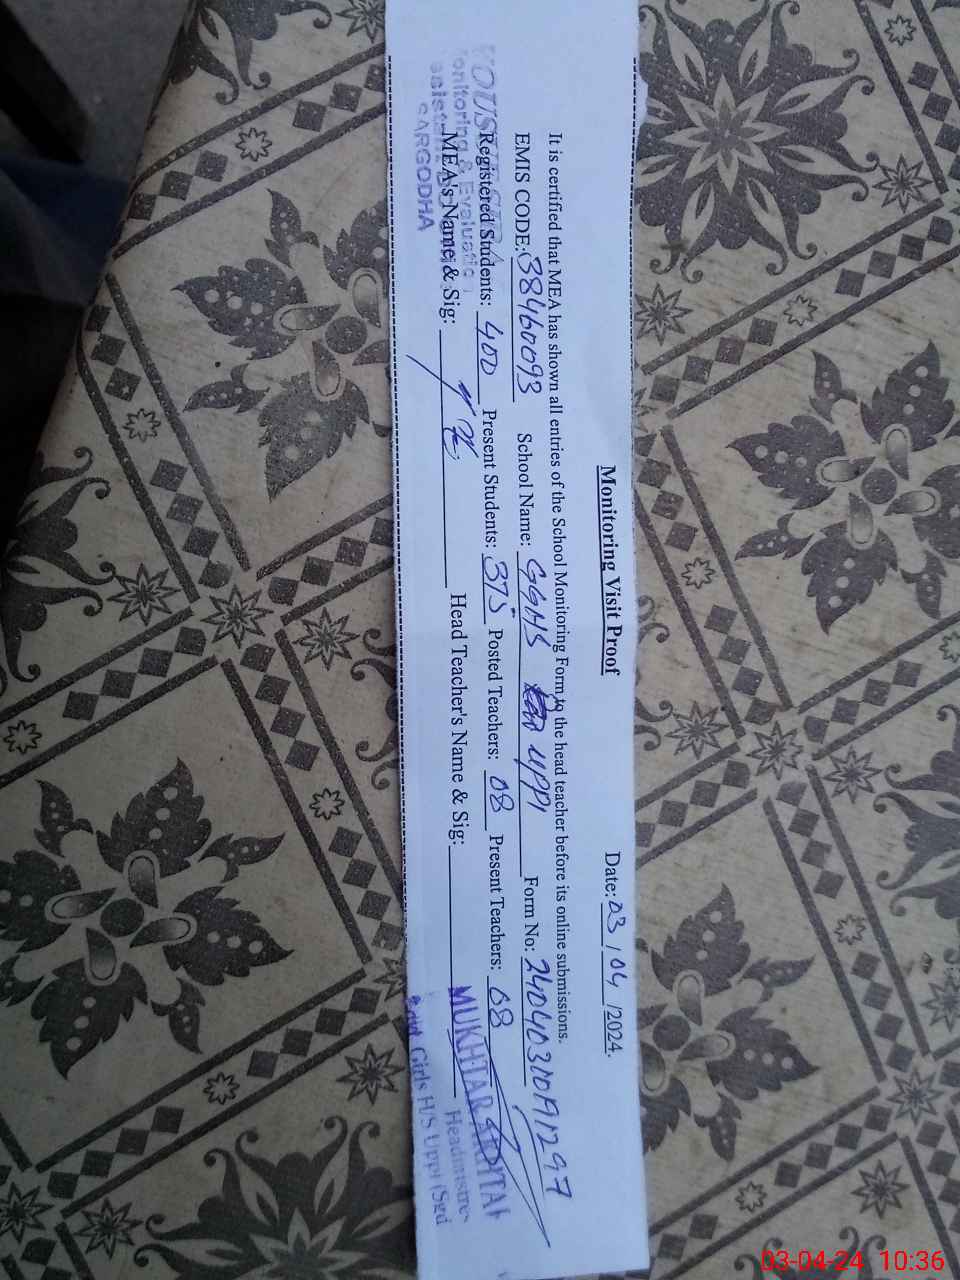 Monitoring Visit Proof
Date: 03 / 04 /2024.
It is certified that MEA has shown all entries of the School Monitoring Form to the head teacher before its online submissions.
EMIS CODE: 38460093 School Name: GGHS UPPI Form No: 240403100A1297
Registered Students: 400 Present Students: 375 Posted Teachers: 08 Present Teachers: 08
MEA's Name & Sig: Head Teacher's Name & Sig:
Monitoring & Evaluation
SARGODHA
MUKHTAR
Headmistress
Govt Girls H/S Uppi (Sgd
03-04-24 10:36